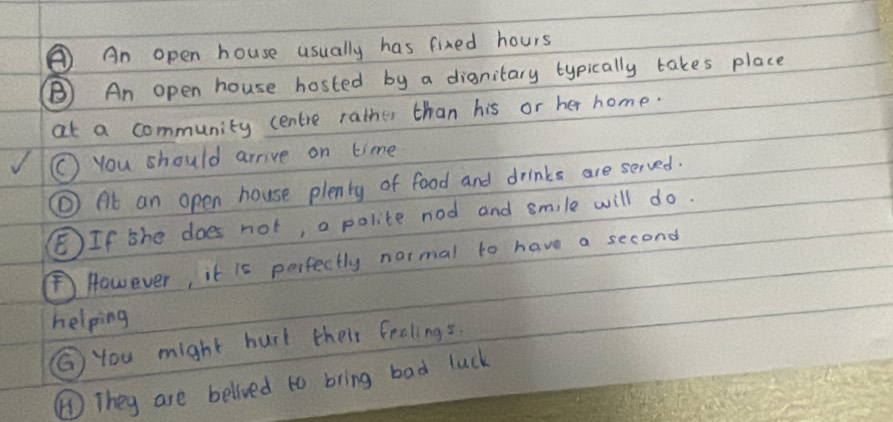 Ⓐ An open house usually has fixed hours
Ⓑ An open house hosted by a dignitary typically takes place
at a community centre rather than his or her home.
✓ Ⓒ You should arrive on time
Ⓓ At an open house plenty of food and drinks are served.
Ⓔ If she does not, a polite nod and smile will do.
Ⓕ However, it is perfectly normal to have a second
helping
Ⓖ You might hurt their feelings.
Ⓗ They are belived to bring bad luck